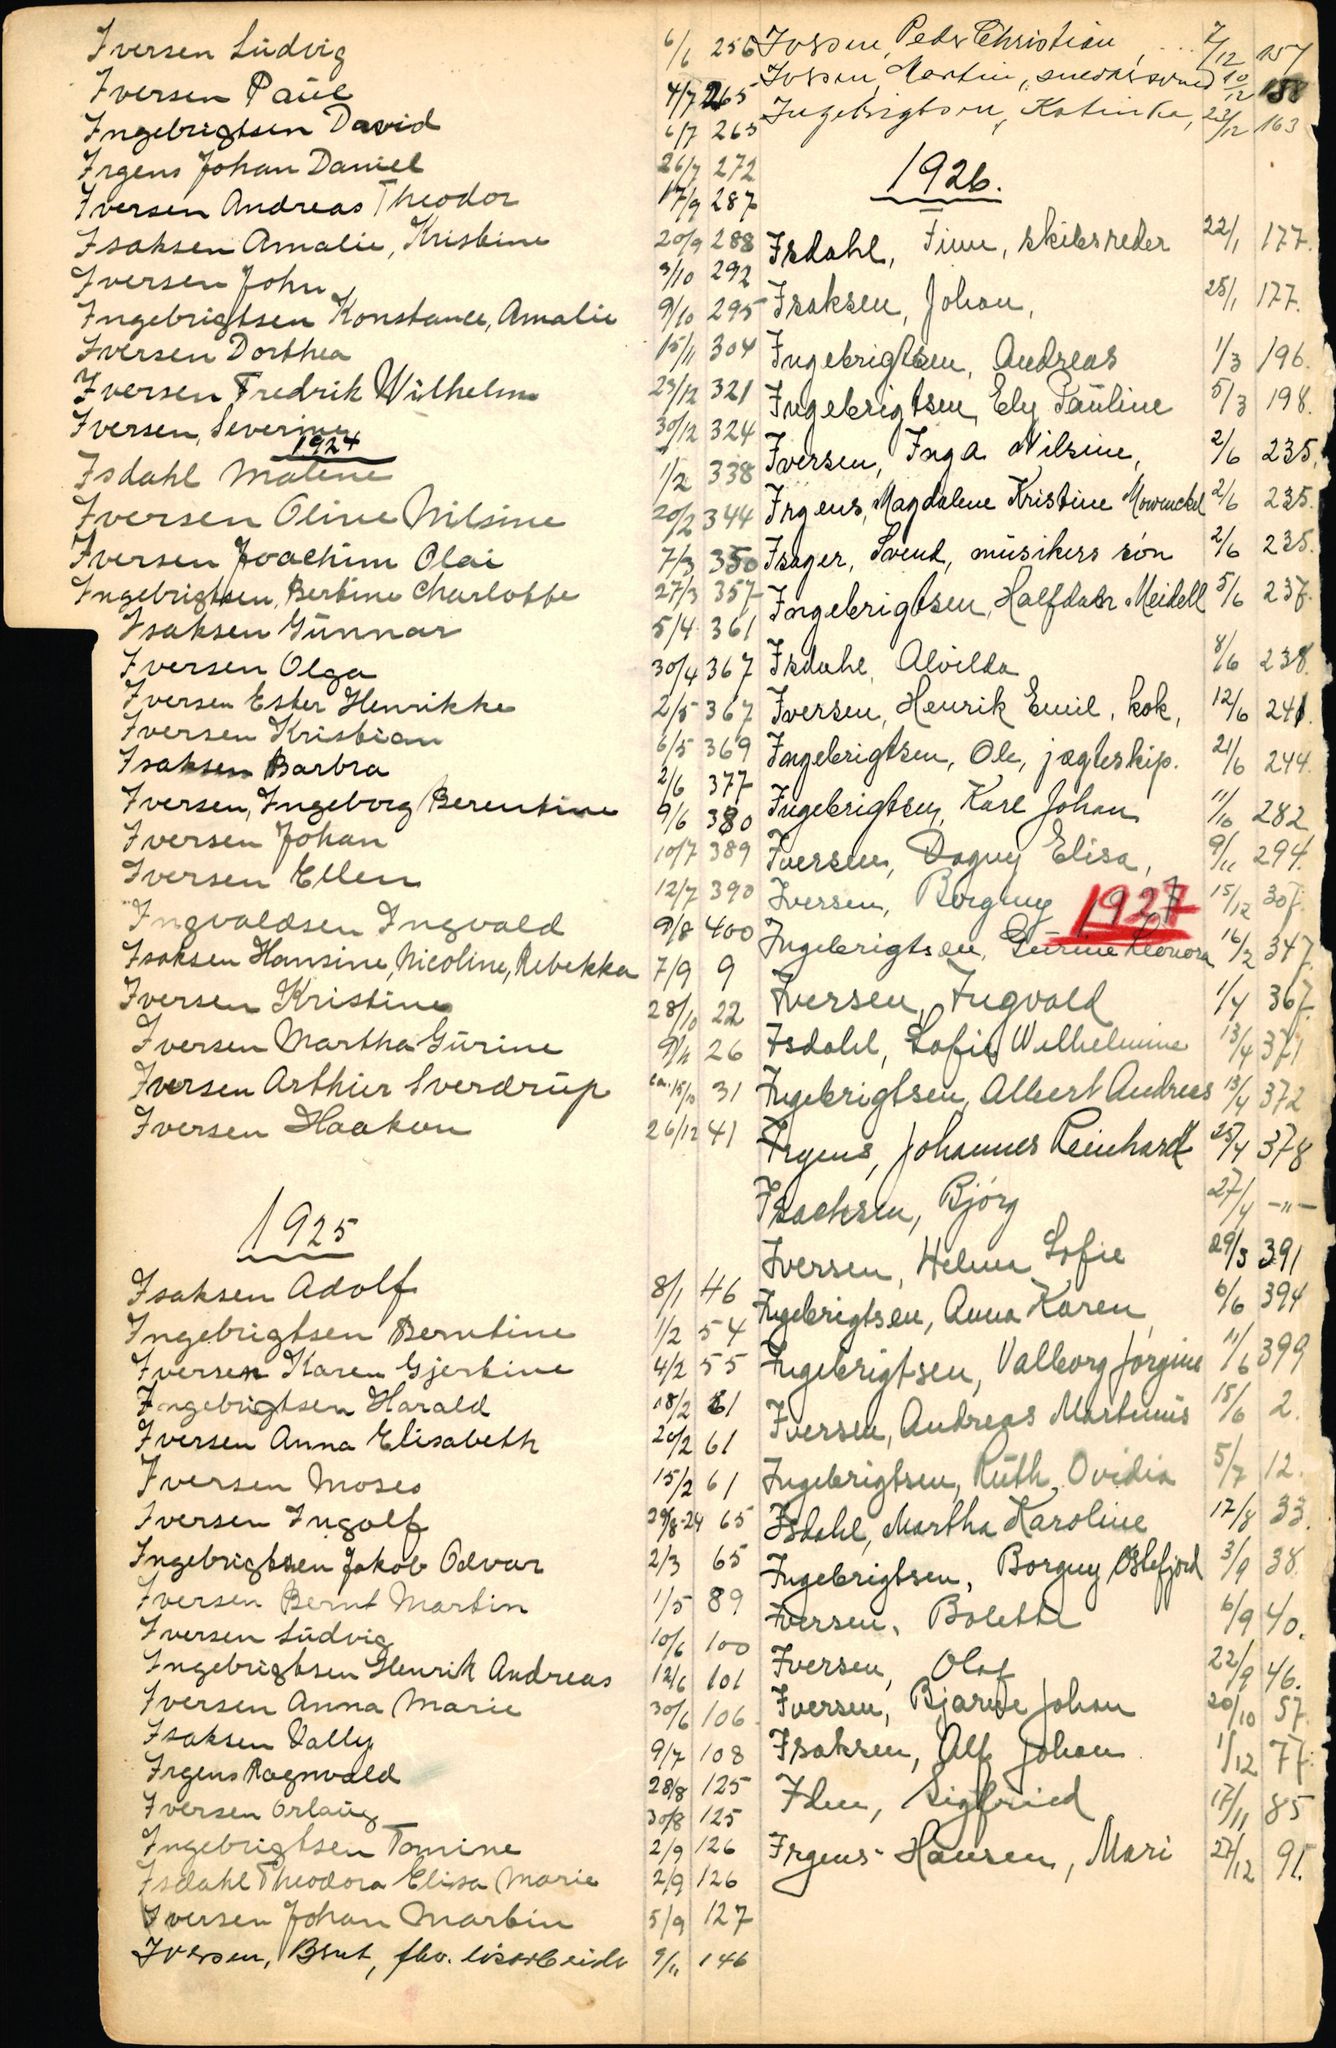 Iversen Ludvig 6/1 256
Iversen Paul 4/7 265
Ingebrigtsen David 6/7 265
Irgens Johan Daniel 26/7 272
Iversen Andreas Theodor 17/9 287
Isaksen Amalie, Kristine 20/9 288
Iversen John 3/10 292
Ingebrigtsen Konstance, Amalie 9/10 295
Iversen Dorthea 15/11 304
Iversen Fredrik Wilhelm 23/12 321
Iversen, Severine 30/12 324
1924
Isdahl Malene 1/2 338
Iversen Oline Nilsine 20/2 344
Iversen Joachim Olai 7/3 350
Ingebrigtsen, Bertine Charlotte 27/3 357
Isaksen Gunnar 5/4 361
Iversen Olga 30/4 367
Iversen Ester Henrikke 2/5 367
Iversen Kristian 6/5 369
Isaksen Barbra 2/6 377
Iversen, Ingeborg Berentine 9/6 380
Iversen Johan 10/7 389
Iversen Ellen 12/7 390
Ingvaldsen Ingvald 9/8 400
Isaksen Hansine, Nicoline, Rebekka 7/9 9
Iversen Kristine 28/10 22
Iversen Martha Gurine 9/11 26
Iversen Arthur Sverdrup ca. 15/10 31
Iversen Haakon 26/12 41
1925
Isaksen Adolf 8/1 46
Ingebrigtsen Berntine 1/2 54
Iversen Karen Gjertine 4/2 55
Ingebrigtsen Harald 18/2 61
Iversen Anna Elisabeth 20/2 61
Iversen Moses 15/2 61
Iversen Ingolf 29/8-24 65
Ingebrigtsen Jakob Odvar 2/3 65
Iversen Bernt Martin 1/5 89
Iversen Ludvig 10/6 100
Ingebrigtsen Henrik Andreas 12/6 101
Iversen Anna Marie 30/6 106
Isaksen Vally 9/7 108
Irgens Ragnvald 28/8 125
Iversen Orlaug 30/8 125
Ingebrigtsen Tomine 2/9 126
Isdahl Theodora Elisa Marie 2/9 126
Iversen Johan Martin 5/9 127
Iversen, Bernt, fhv. 9/11 146
Iversen, Peder Christian 7/12 157
Iversen, Martin, 10/12 158
Ingebrigtsen, Katinka, 23/12 163
1926.
Isdahl, Finn, skibsreder 22/1 177.
Isaksen, Johan, 25/1 177.
Ingebrigtsen, Andreas 1/3 196.
Ingebrigtsen, Ely Pauline 5/3 198.
Iversen, Inga Nilsine, 2/6 235.
Irgens, Magdalene Kristine Mowinckel 2/6 235.
Isager, Svend, musikers søn 2/6 235.
Ingebrigtsen, Halfdan Meidell 5/6 237.
Isdahl, Alvilda 8/6 238.
Iversen, Henrik Emil, kok, 12/6 241.
Ingebrigtsen, Ole, jægteskip. 21/6 244.
Ingebrigtsen, Karl Johan 11/10 282
Iversen, Dagny Elisa, 9/11 294.
Iversen, Borgny 15/12 307.
1927
Ingebrigtsen, Gurine Leonora 16/2 347.
Iversen, Ingvald 1/4 367.
Isdahl, Sofie Wilhelmine 13/4 371
Ingebrigtsen, Albert Andreas 13/4 372
Irgens, Johannes Reinhardt 25/4 378
Isachsen, Bjørg 27/4 -"-
Iversen, Helma Sofie 29/5 391
Ingebrigtsen, Anna Karen 6/6 394
Ingebrigtsen, Valborg Jørgine 11/6 399
Iversen, Andreas Martinus 15/6 2.
Ingebrigtsen, Ruth Ovidia 5/7 12.
Isdahl, Martha Karoline 17/8 33.
Ingebrigtsen, Borgny Østefjord 3/9 38.
Iversen, Bolette 6/9 40.
Iversen, Olaf 22/9 46.
Iversen, Bjarne Johan 20/10 57.
Isaksen, Alf Johan 1/12 77.
Iden, Sigfried 17/11 85
Irgens-Hansen, Mari 27/12 91.